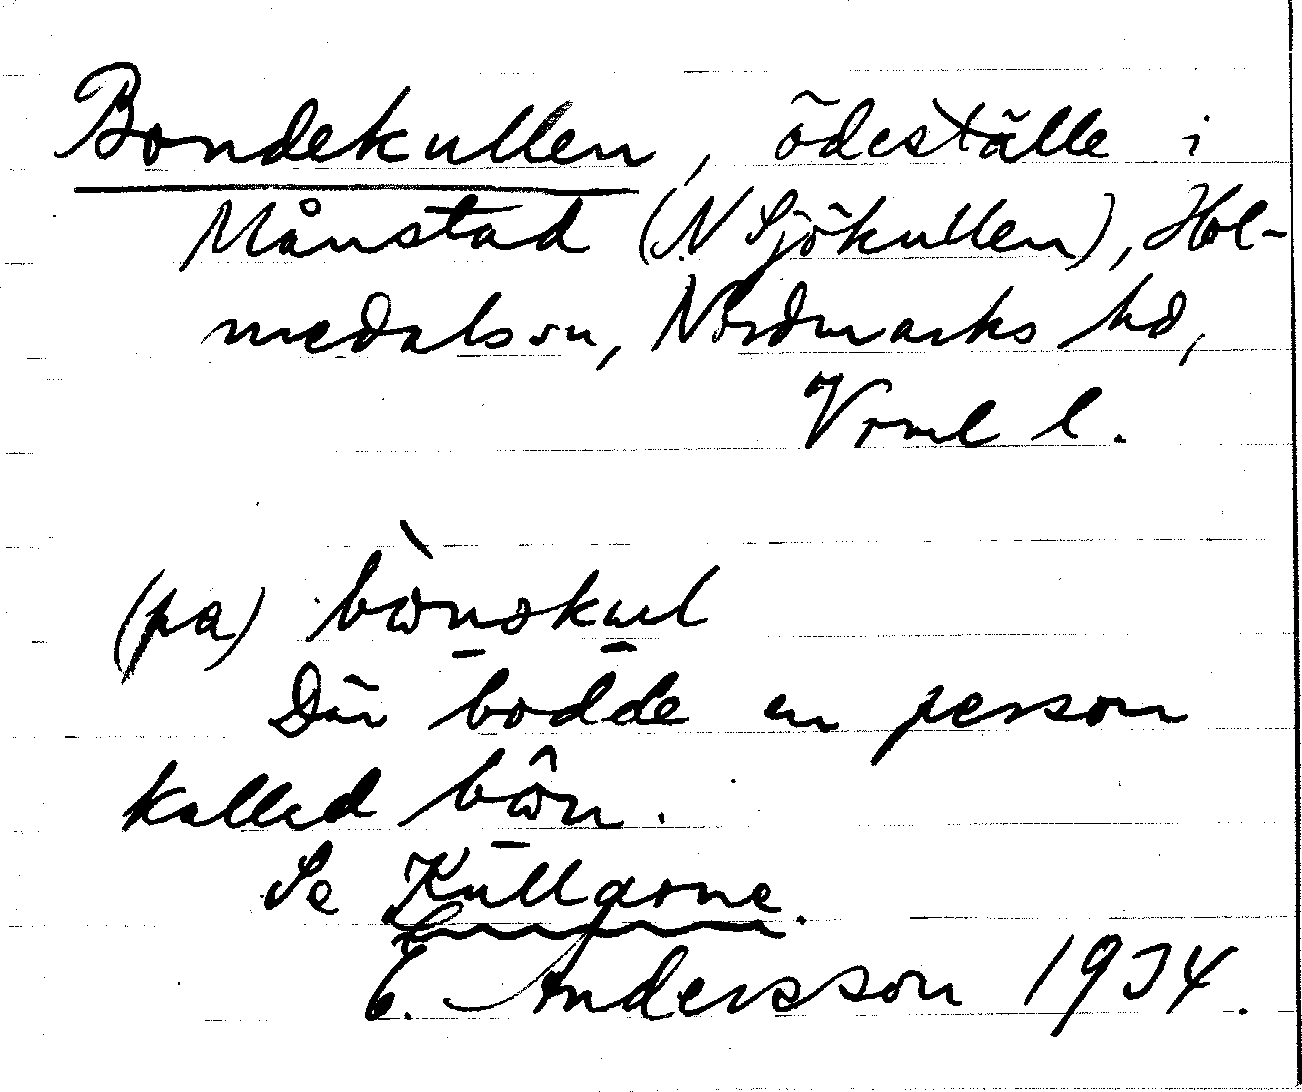 Bondekullen, ödeställe i
Månstad (N Sjökullen), Hol-
medals sn, Nordmarks hd,
Vrml l.
(pa) bὼnskul
Där bodde en person
kallad bω̂n.
Se Kullarne.
E. Andersson 1934.